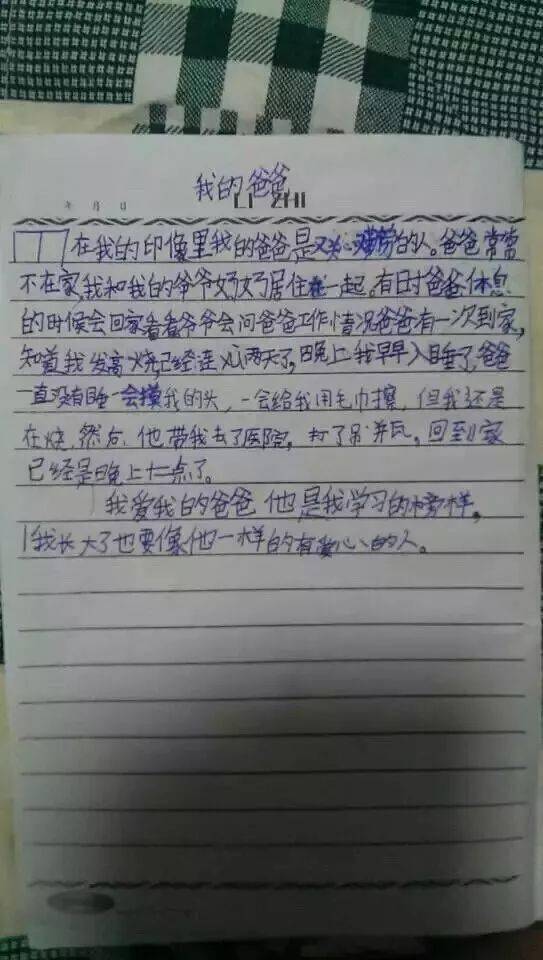 我的爸爸
年 月 日
LI ZHI
在我的印像里我的爸爸是又心疲劳的人。爸爸常常
不在家,我和我的爷爷奶奶居住在一起。有时爸爸休息
的时候会回家看看爷爷会问爸爸工作情况爸爸有一次到家,
知道我发高烧已经连火两天了,晚上我早早入睡了,爸爸
一直没有睡一会摸我的头,一会给我用毛巾擦,但我还是
在烧,然后,他带我去了医院,打了吊并瓦。回到家
已经是晚上十二点了。
我爱我的爸爸他是我学习的榜样,
我长大了也要像他一样的有爱心的人。